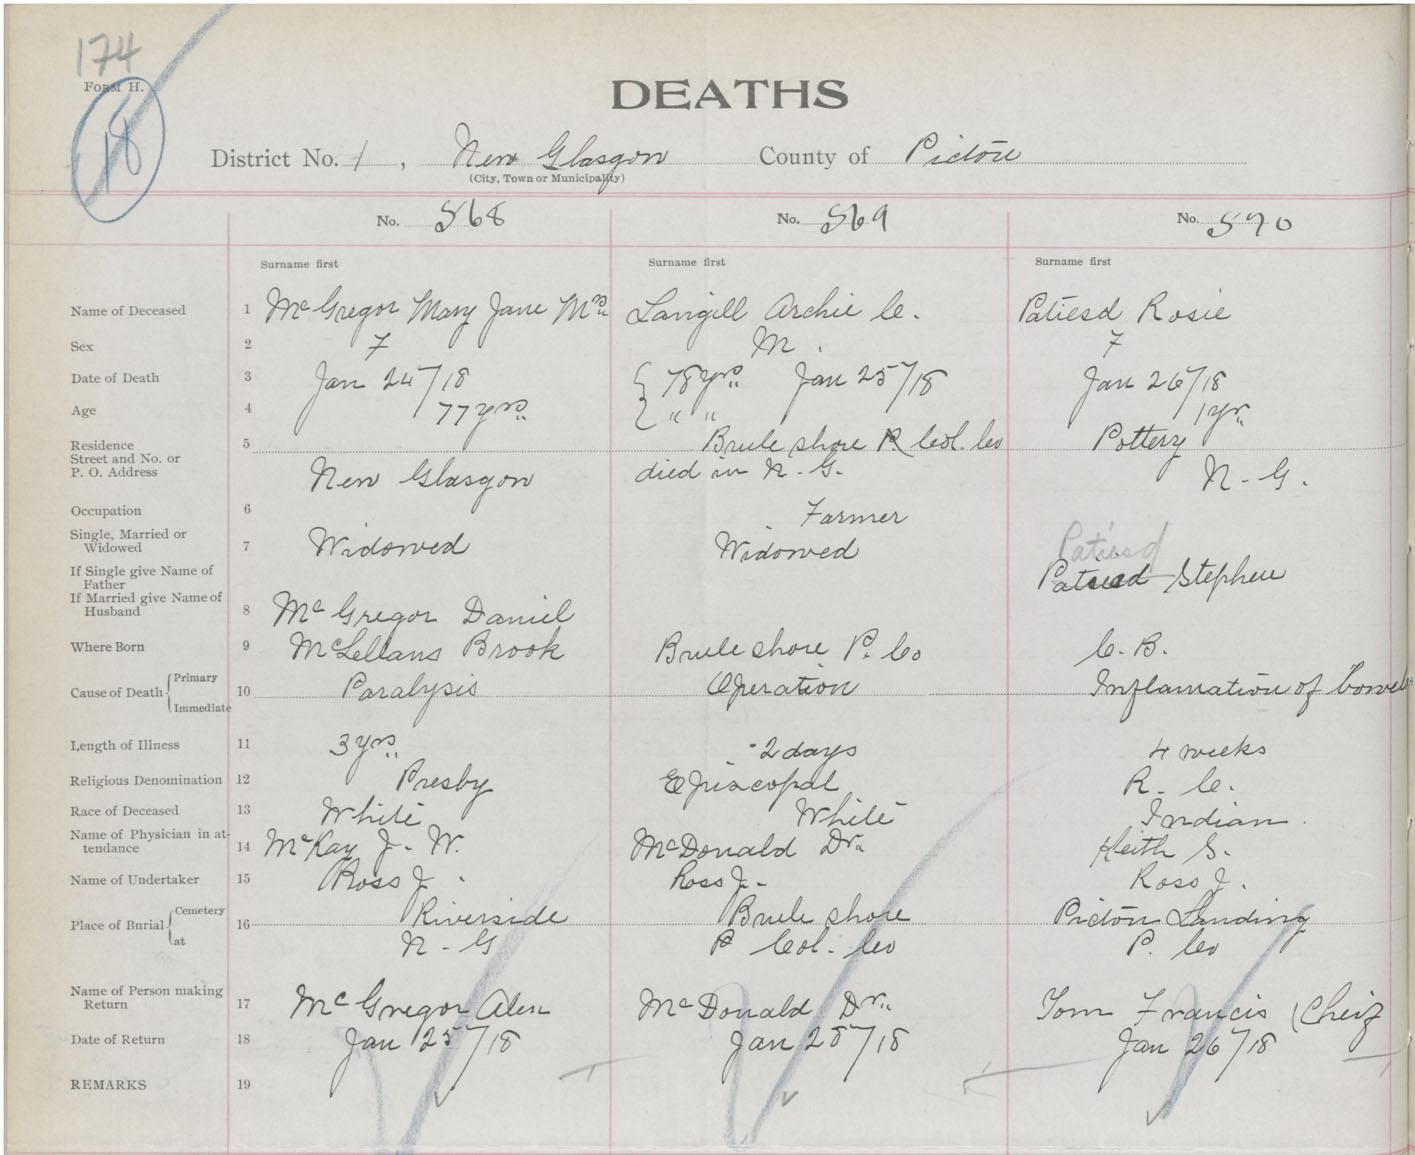 174
FORM H.
18
DEATHS
District No. 1, New Glasgow County of Pictou
(City, Town or Municipality)
No. 568 No. 569 No. 570
Surname first Surname first Surname first
Name of Deceased 1 McGregor Mary Jane Mrs Langill Archie C. Patiesd Rosie
Sex 2 F M. F
Date of Death 3 Jan 24/18 78 yrs Jan 25/18 Jan 26/18
Age 4 77 yrs " " 1 yr
Residence 5 Brule shore P. Col. Co Pottery
Street and No. or
P. O. Address New Glasgow died in N. G. N. G.
Occupation 6 Farmer
Single, Married or
Widowed 7 Widowed Widowed Patiesd
If Single give Name of
Father Patiesd Stephen
If Married give Name of
Husband 8 McGregor Daniel
Where Born 9 McLellans Brook Brule shore P. Co C. B.
Cause of Death { Primary
10 Paralysis Operation Inflamation of bowels
Immediate
Length of Illness 11 3 yrs 2 days 4 weeks
Religious Denomination 12 Presby Episcopal R. C.
Race of Deceased 13 White White Indian
Name of Physician in at-
tendance 14 McKay J. W. McDonald Dr. Keith S.
Name of Undertaker 15 Ross J. Ross J. Ross J.
Place of Bnrial { Cemetery
16 Riverside Brule shore Pictou Landing
at N. G P Col. Co P. Co
Name of Person making
Return 17 McGregor Alex McDonald Dr. Tom Francis (Chief
Date of Return 18 Jan 25/18 Jan 25/18 Jan 26/18
REMARKS 19